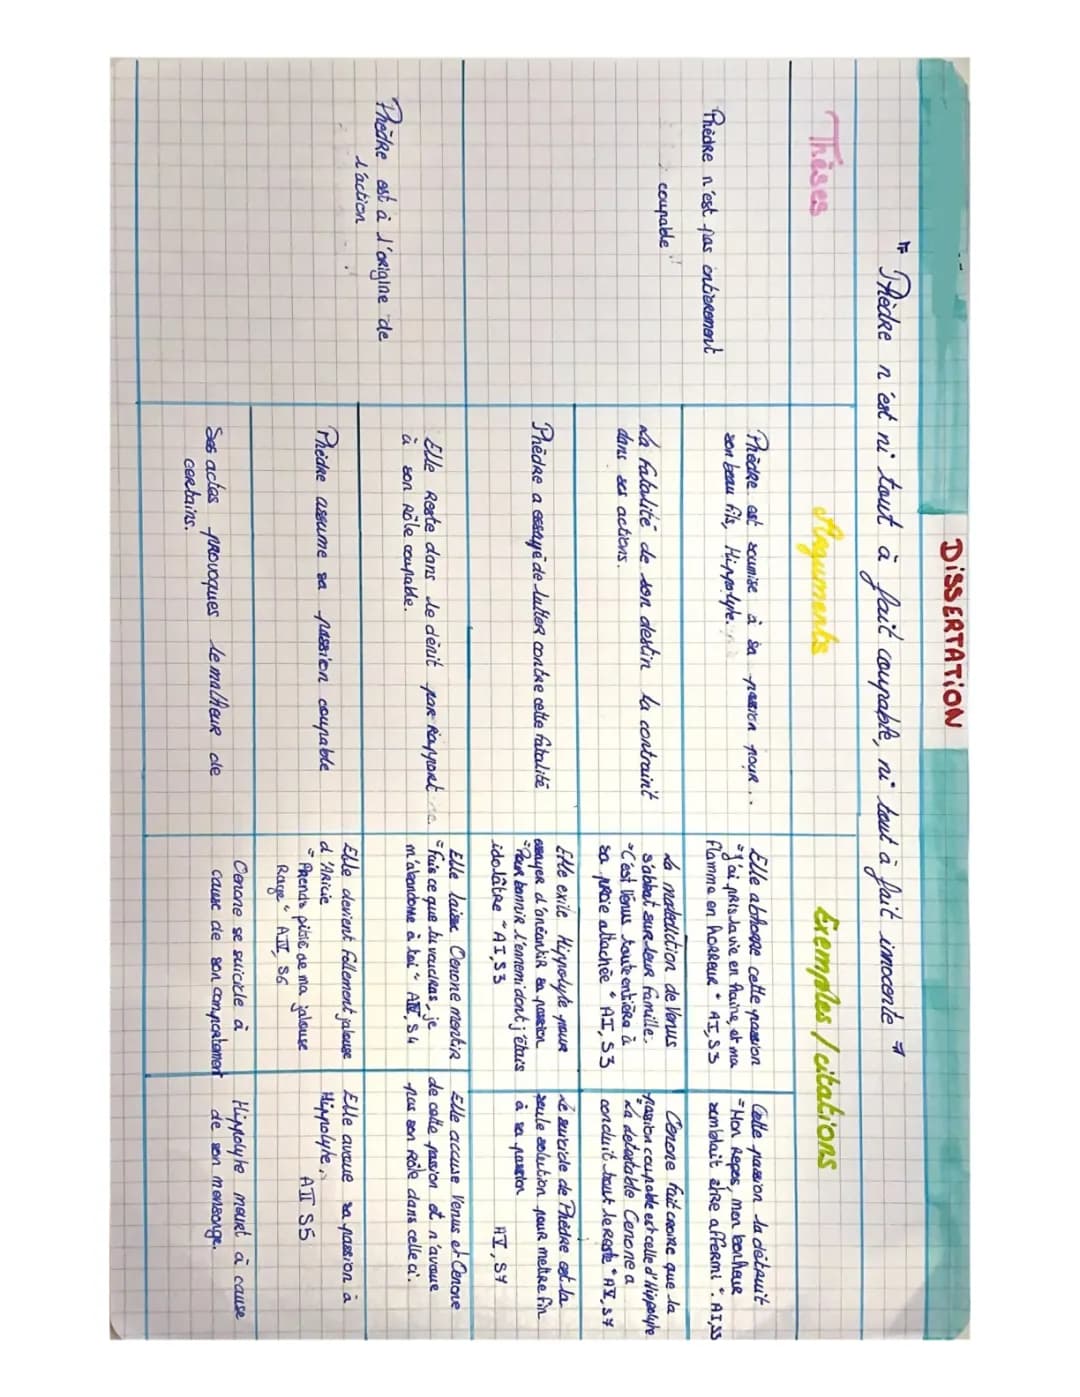 DISSERTATION
" Phèdre n'est ni tout à fait coupable, ni tout à fait innocente "
Thèses
Arguments
Exemples / citations
Phèdre n'est pas entièrement
coupable
Phèdre est soumise à sa passion pour
son beau fils, Hippolyte.
Elle abhorre cette passion
"j'ai pris la vie en haine, et ma
flamme en horreur" AI, S3
Cette passion la détruit
"Mon Repos, mon bonheur
semblait être affermi". AI, S3
La fatalité de son destin la contraint
dans ses actions.
La malédiction de Venus
s'abbat sur leur famille.
"C'est Venus toute entière à
sa proie attachée" AI, S3
Oenone fait croire que la
passion coupable est celle d'Hippolyte
"La detestable Oenone a
conduit tout le reste" AV, S7
Phèdre a essayé de lutter contre cette fatalité
Elle exile Hippolyte pour
essayer d'anéantir sa passion
"Pour bannir l'ennemi dont j'étais
idolâtre" AI, S3
Le suicide de Phèdre est la
seule solution pour mettre fin
à sa passion
AV, S7
Phèdre est à l'origine de
l'action
Elle Reste dans le dénit par Rapport
à son Rôle coupable.
Elle laisse Oenone mentir
"fais ce que tu voudras, je
m'abandonne à toi" AIV, S4
Elle accuse Venus et Oenone
de cette passion et n'avoue
pas son Rôle dans celle ci.
Phèdre assume sa passion coupable
Elle devient follement jalouse
d'Aricie
"Prends pitié de ma jalouse
Rage" AIV, S6
Elle avoue sa passion à
Hippolyte,
AII S5
Ses actes provoques le malheur de
certains.
Oenone se suicide à
cause de son comportement
Hippolyte meurt à cause
de son mensonge.